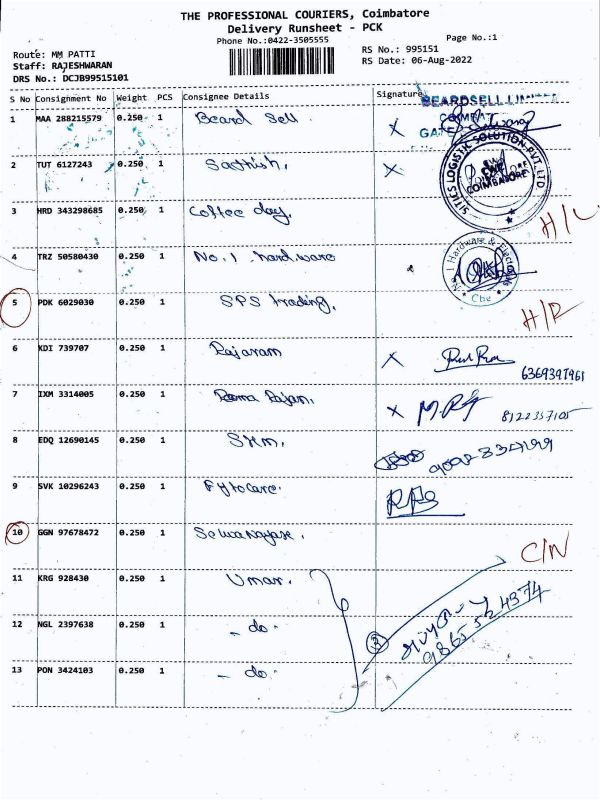 THE PROFESSIONAL COURIERS, Coimbatore
Delivery Runsheet - PCK
Phone No.:0422-3505555
Page No.:1
Route: MM PATTI
RS No.: 995151
Staff: RAJESHWARAN
RS Date: 06-Aug-2022
DRS No.: DCJB99515101
S No Consignment No Weight PCS Consignee Details Signature
BEARDSELL LIMITED
1 MAA 288215579 0.250 1 Beard sell X
2 TUT 6127243 0.250 1 Sasthish. X
SITICS LOGISTIC SOLUTION PVT LTD
COIMBATORE
3 HRD 343298685 0.250 1 Coffee day.
4 TRZ 50580430 0.250 1 No.1 hardware
No. 1 Hardware & Electricals
Cbe
5 PDK 6029030 0.250 1 SPS trading.
6 KDI 739707 0.250 1 Rajaram X
6369397961
7 IXM 3314005 0.250 1 Rama Rajan. X
8122357105
8 EDQ 12690145 0.250 1 SKM.
9 SVK 10296243 0.250 1 Fytocare.
10 GGN 97678472 0.250 1
C/N
11 KRG 928430 0.250 1 Umar.
12 NGL 2397638 0.250 1 - do -
3
9865524374
13 PON 3424103 0.250 1 - do -